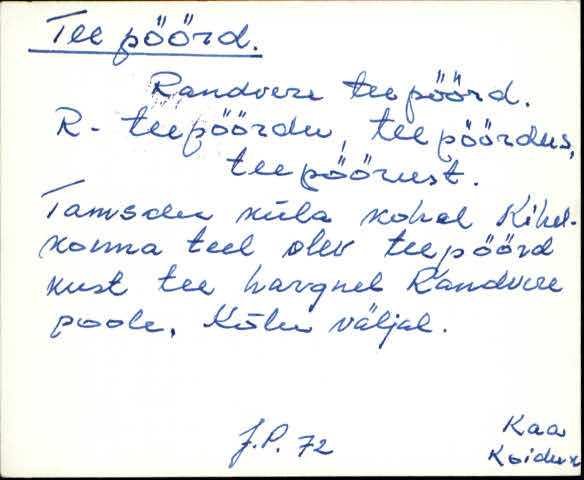 Tee pöörd.
Randvere teepöörd.
R- teepöördu, teepöördus,
teepöörust.
Tamsalu küla kohal Kihel-
konna teel olev teepöörd
kust tee hargneb Randvere
poole. Kõlu väljal.
J.P. 72
Kaa